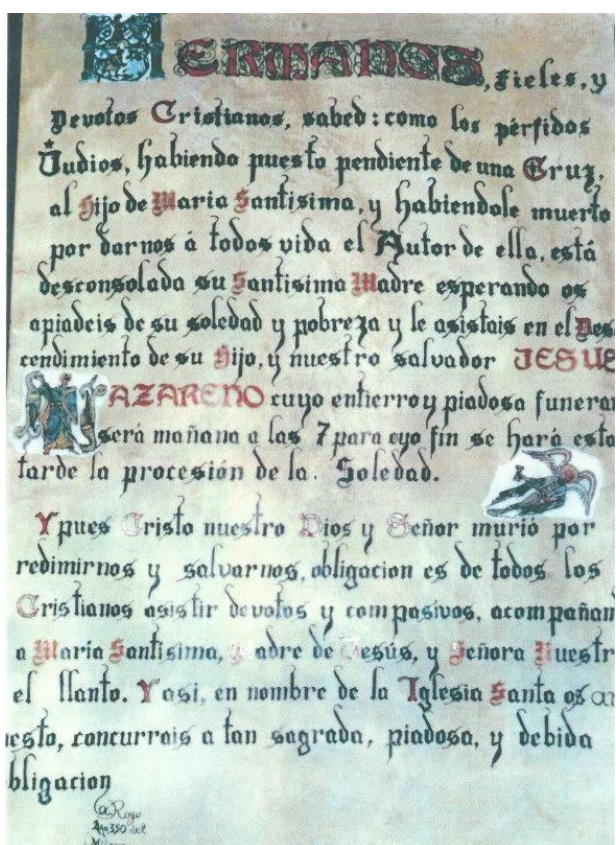 HERMANOS, fieles, y
Devotos Cristianos, sabed: como los pérfidos
Judios, habiendo puesto pendiente de una Cruz,
al Hijo de Maria Santisima, y habiendole muerto
por darnos á todos vida el Autor de ella, está
desconsolada su Santisima Madre esperando os
apiadeis de su soledad y pobreza y le asistais en el Des
cendimiento de su Hijo, y nuestro salvador JESUS
NAZARENO cuyo entierro y piadosa funera
será mañana a las 7 para cyo fin se hará esta
tarde la procesión de la. Soledad.
Y pues Cristo nuestro Dios y Señor murió por
redimirnos y salvarnos, obligacion es de todos los
Cristianos asistir devotos y compasivos, acompañan
a María Santisima, Madre de Jesús, y Señora Nuestr
el llanto. Y asi, en nombre de la Iglesia Santa os
esto, concurrais a tan sagrada, piadosa, y debida
bligacion
Royo
Año 350 del